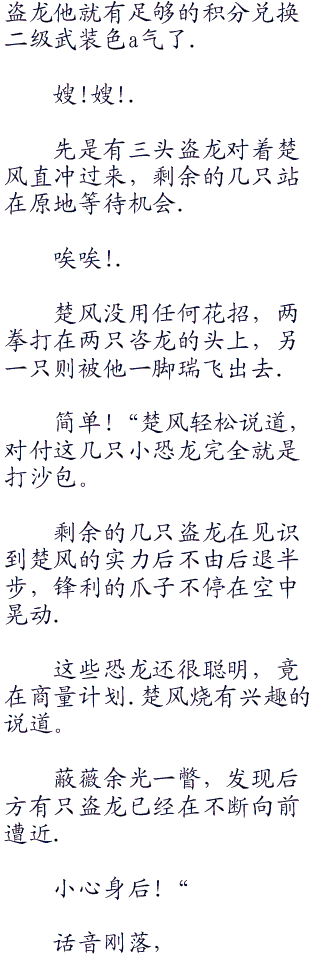 盗龙他就有足够的积分兑换
二级武装色a气了.
嫂!嫂!.
先是有三头盗龙对着楚
风直冲过来，剩余的几只站
在原地等待机会.
唉唉!.
楚风没用任何花招，两
拳打在两只咨龙的头上，另
一只则被他一脚瑞飞出去.
简单！“楚风轻松说道，
对付这几只小恐龙完全就是
打沙包。
剩余的几只盗龙在见识
到楚风的实力后不由后退半
步，锋利的爪子不停在空中
晃动.
这些恐龙还很聪明，竟
在商量计划.楚风烧有兴趣的
说道。
蔽薇余光一瞥，发现后
方有只盗龙已经在不断向前
遭近.
小心身后！“
话音刚落，